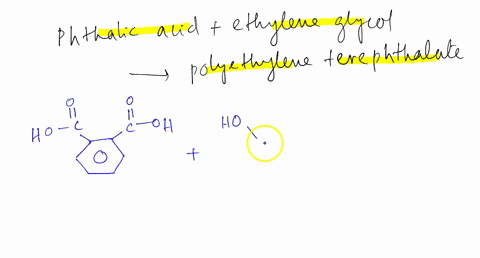 Phthalic acid + ethylene glycol
→ polyethylene terephthalate
O O
HO-C C-OH HO
+